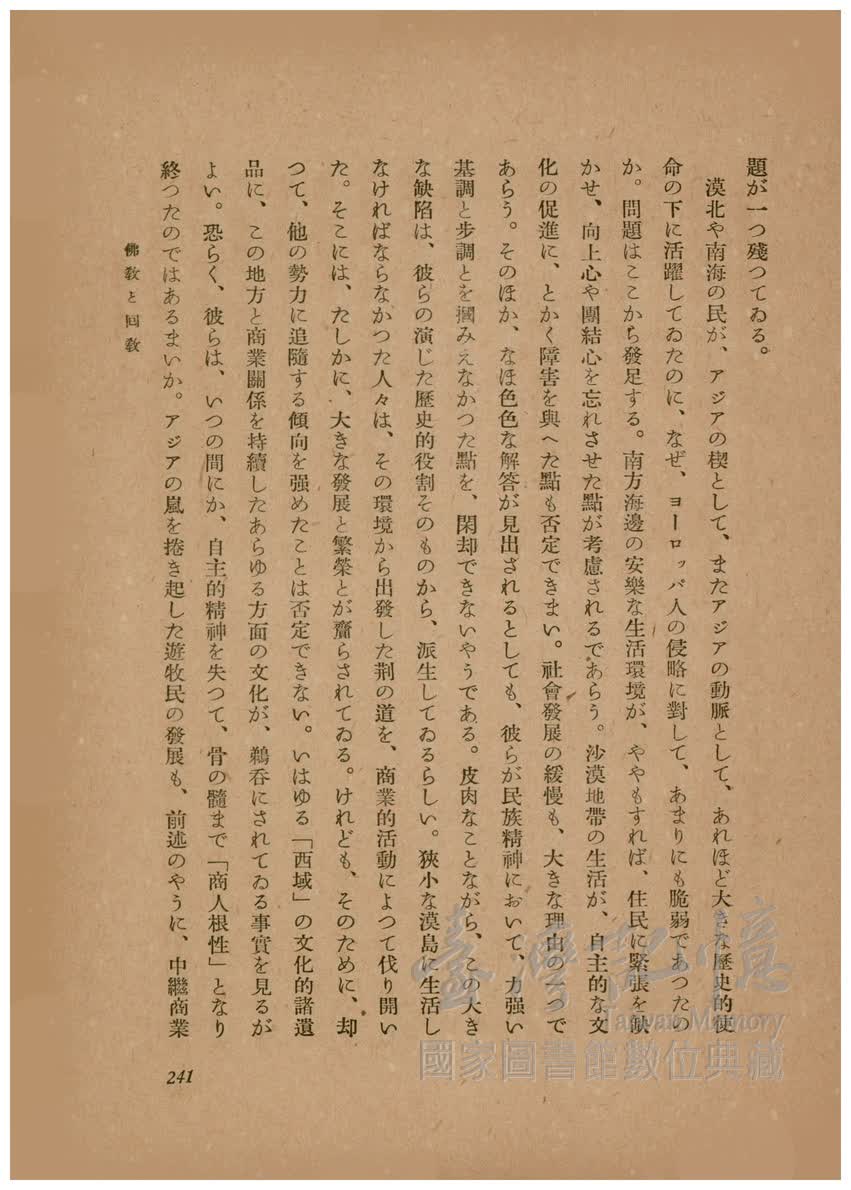 題が一つ殘つてゐる。
漠北や南海の民が、アジアの楔として、またアジアの動脈として、あれほど大きな歷史的使
命の下に活躍してゐたのに、なぜ、ヨーロッパ人の侵略に對して、あまりにも脆弱であつたの
か。問題はここから發足する。南方海邊の安樂な生活環境が、ややもすれば、住民に緊張を缺
かせ、向上心や團結心を忘れさせた點が考慮されるであらう。沙漠地帶の生活が、自主的な文
化の促進に、とかく障害を與へた點も否定できまい。社會發展の緩慢も、大きな理由の一つで
あらう。そのほか、なほ色色な解答が見出されるとしても、彼らが民族精神において、力强い
基調と步調とを摑みえなかつた點を、閑却できないやうである。皮肉なことながら、この大き
な缺陷は、彼らの演じた歷史的役割そのものから、派生してゐるらしい。狹小な漠島に生活し
なければならなかつた人々は、その環境から出發した荆の道を、商業的活動によつて伐り開い
た。そこには、たしかに、大きな發展と繁榮とが齎らされてゐる。けれども、そのために、却
つて、他の勢力に追隨する傾向を强めたことは否定できない。いはゆる「西域」の文化的諸遺
品に、この地方と商業關係を持續したあらゆる方面の文化が、鵜呑にされてゐる事實を見るが
よい。恐らく、彼らは、いつの間にか、自主的精神を失つて、骨の髓まで「商人根性」となり
終つたのではあるまいか。アジアの嵐を捲き起した遊牧民の發展も、前述のやうに、中繼商業
佛敎と回敎
241
臺灣記憶
Taiwan Memory
國家圖書館數位典藏